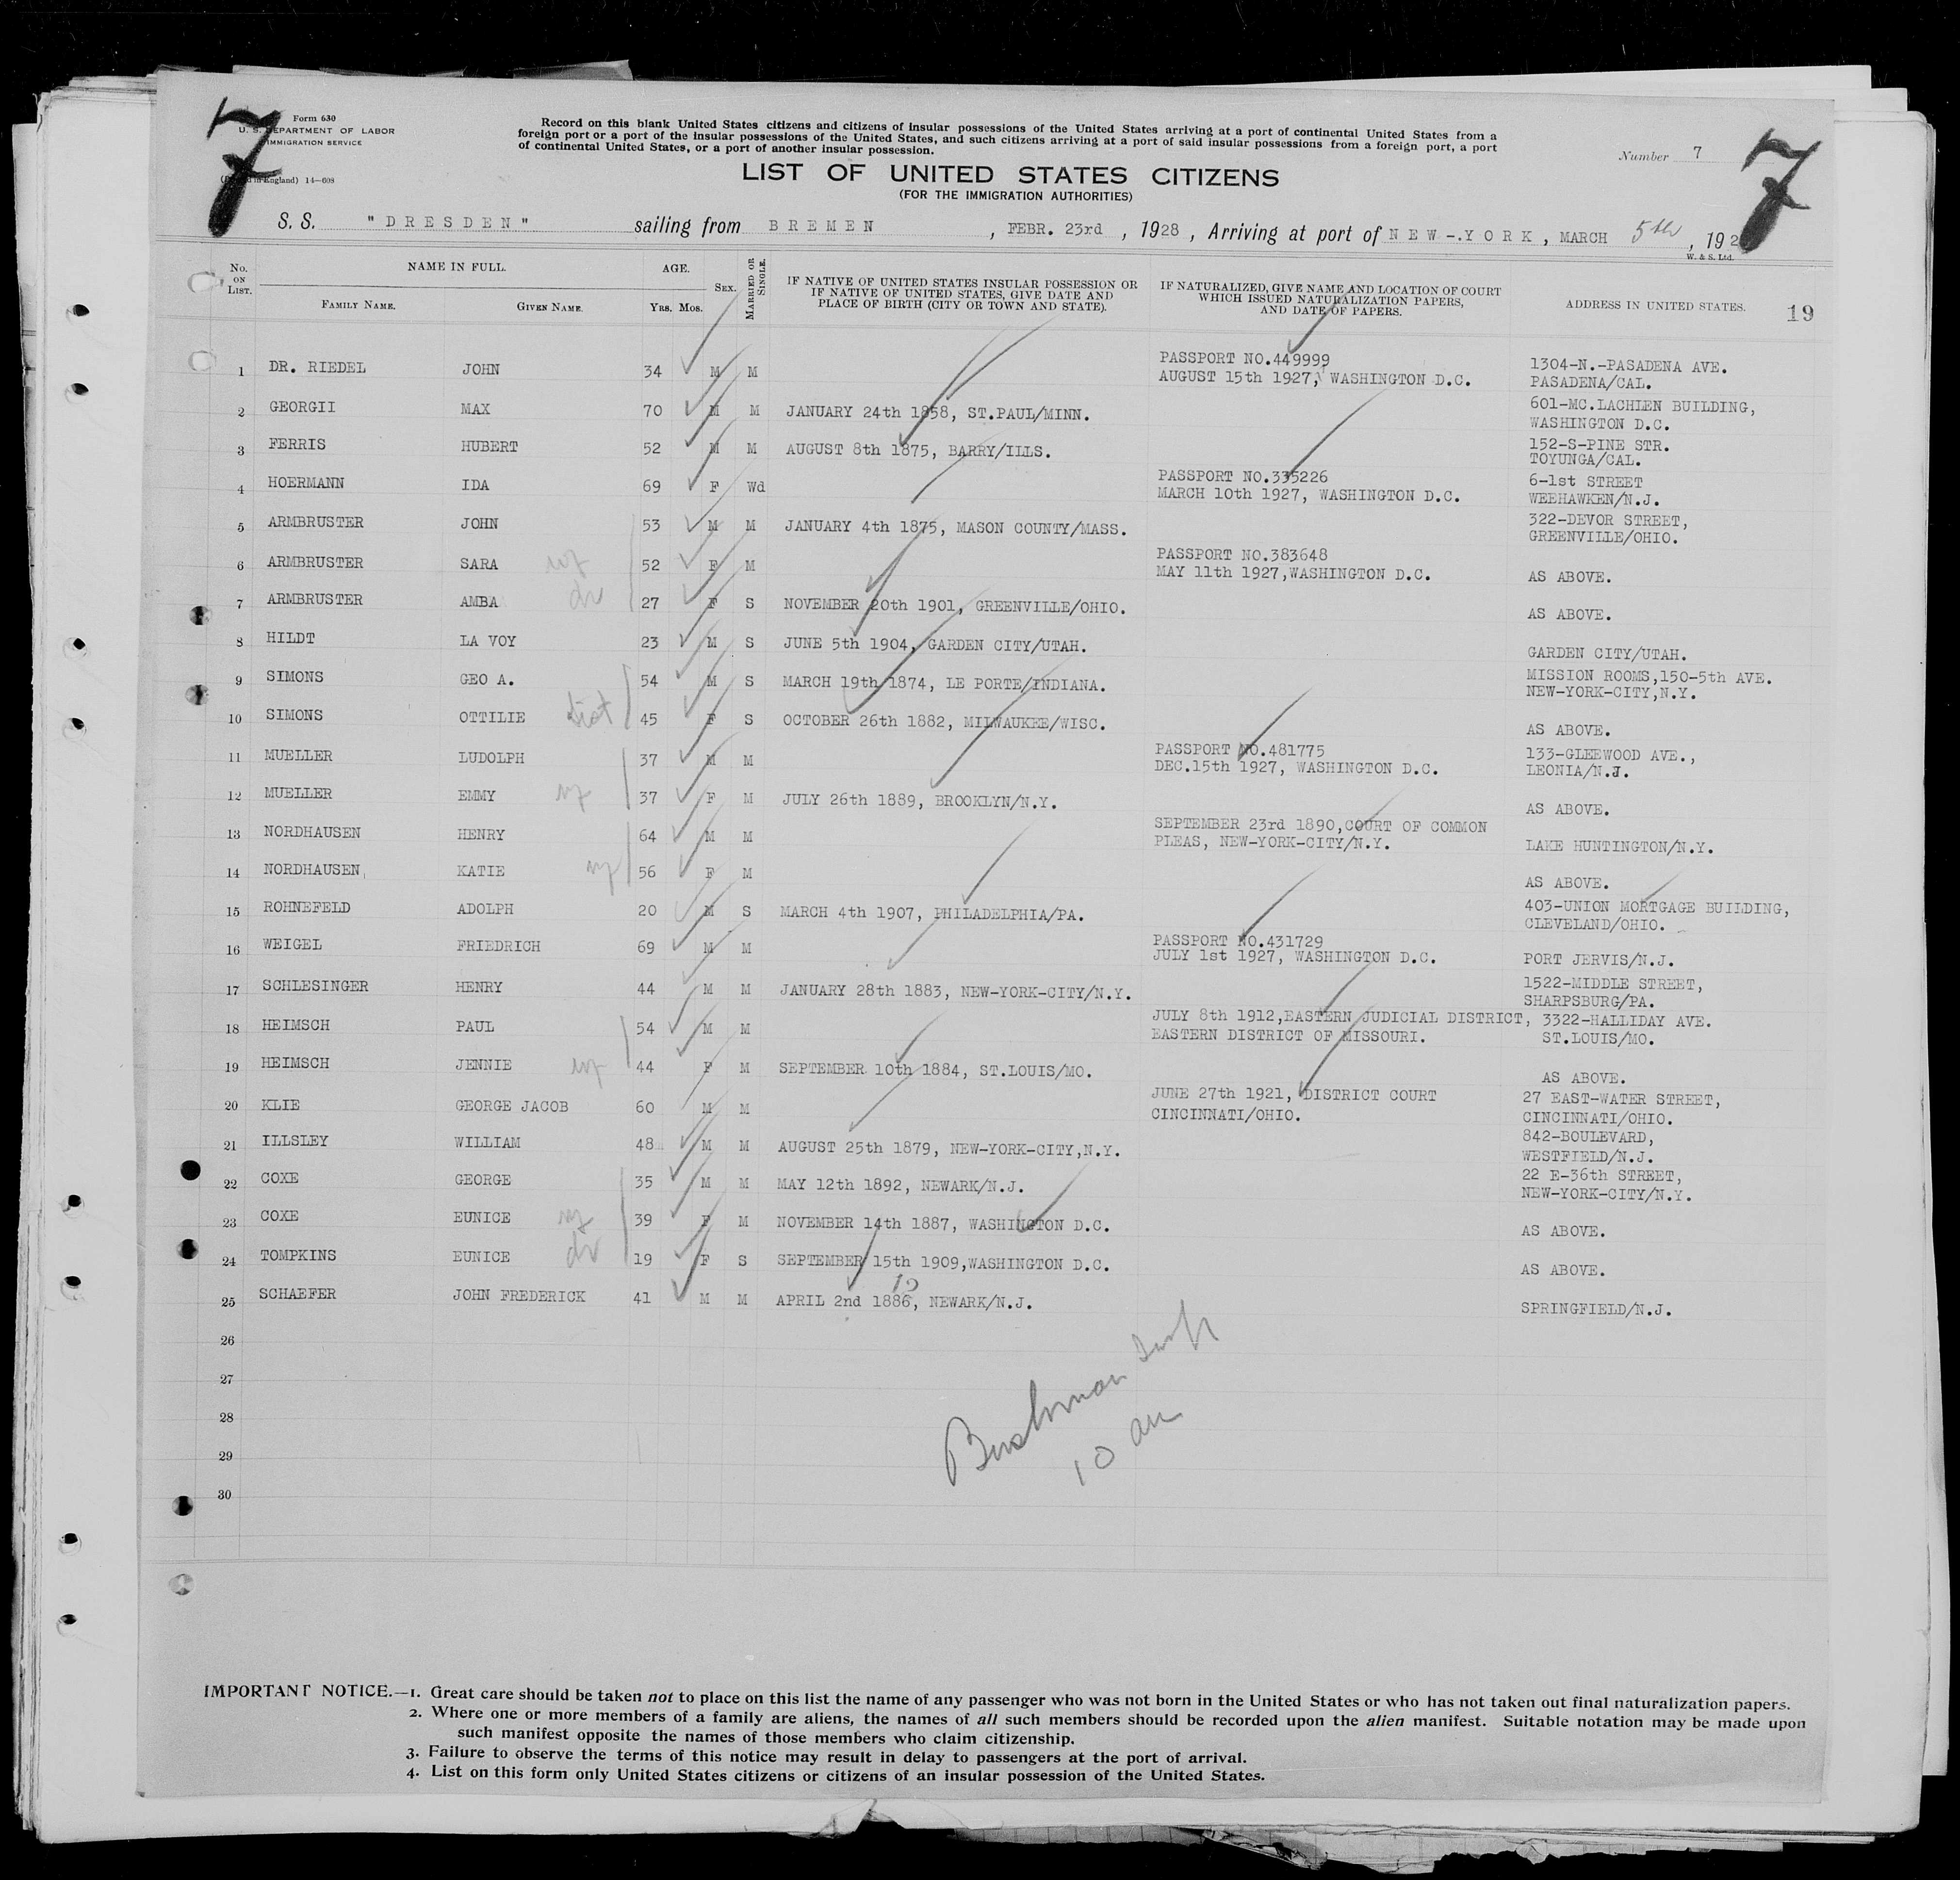 7
Form 630
U. S. DEPARTMENT OF LABOR
IMMIGRATION SERVICE
England) 14—608
Record on this blank United States citizens and citizens of insular possessions of the United States arriving at a port of continental United States from a
foreign port or a port of the insular possessions of the United States, and such citizens arriving at a port of said insular possessions from a foreign port, a port
of continental United States, or a port of another insular possession.
Number 7
7
LIST OF UNITED STATES CITIZENS
(FOR THE IMMIGRATION AUTHORITIES)
S. S. "DRESDEN" sailing from BREMEN, FEBR. 23rd, 1928, Arriving at port of NEW-.YORK, MARCH 5th, 192
W. & S. Ltd.
No. ON LIST. NAME IN FULL. AGE. SEX. MARRIED OR SINGLE. IF NATIVE OF UNITED STATES INSULAR POSSESSION OR IF NATIVE OF UNITED STATES, GIVE DATE AND PLACE OF BIRTH (CITY OR TOWN AND STATE). IF NATURALIZED, GIVE NAME AND LOCATION OF COURT WHICH ISSUED NATURALIZATION PAPERS, AND DATE OF PAPERS. ADDRESS IN UNITED STATES. 19
FAMILY NAME. GIVEN NAME. YRS. MOS.
1 DR. RIEDEL JOHN 34 M M PASSPORT NO.449999 AUGUST 15th 1927, WASHINGTON D.C. 1304-N.-PASADENA AVE. PASADENA/CAL.
2 GEORGII MAX 70 M M JANUARY 24th 1858, ST.PAUL/MINN. 601-MC.LACHLEN BUILDING, WASHINGTON D.C.
3 FERRIS HUBERT 52 M M AUGUST 8th 1875, BARRY/ILLS. 152-S-PINE STR. TOYUNGA/CAL.
4 HOERMANN IDA 69 F Wd PASSPORT NO.335226 MARCH 10th 1927, WASHINGTON D.C. 6-1st STREET WEEHAWKEN/N.J.
5 ARMBRUSTER JOHN 53 M M JANUARY 4th 1875, MASON COUNTY/MASS. 322-DEVOR STREET, GREENVILLE/OHIO.
6 ARMBRUSTER SARA wf 52 F M PASSPORT NO.383648 MAY 11th 1927,WASHINGTON D.C. AS ABOVE.
7 ARMBRUSTER AMBA dr 27 F S NOVEMBER 20th 1901, GREENVILLE/OHIO. AS ABOVE.
8 HILDT LA VOY 23 M S JUNE 5th 1904, GARDEN CITY/UTAH. GARDEN CITY/UTAH.
9 SIMONS GEO A. 54 M S MARCH 19th 1874, LE PORTE/INDIANA. MISSION ROOMS,150-5th AVE. NEW-YORK-CITY,N.Y.
10 SIMONS OTTILIE sist 45 F S OCTOBER 26th 1882, MILWAUKEE/WISC. AS ABOVE.
11 MUELLER LUDOLPH 37 M M PASSPORT NO.481775 DEC.15th 1927, WASHINGTON D.C. 133-GLEEWOOD AVE., LEONIA/N.J.
12 MUELLER EMMY wf 37 F M JULY 26th 1889, BROOKLYN/N.Y. AS ABOVE.
13 NORDHAUSEN HENRY 64 M M SEPTEMBER 23rd 1890,COURT OF COMMON PLEAS, NEW-YORK-CITY/N.Y. LAKE HUNTINGTON/N.Y.
14 NORDHAUSEN KATIE wf 56 F M AS ABOVE.
15 ROHNEFELD ADOLPH 20 M S MARCH 4th 1907, PHILADELPHIA/PA. 403-UNION MORTGAGE BUILDING, CLEVELAND/OHIO.
16 WEIGEL FRIEDRICH 69 M M PASSPORT NO.431729 JULY 1st 1927, WASHINGTON D.C. PORT JERVIS/N.J.
17 SCHLESINGER HENRY 44 M M JANUARY 28th 1883, NEW-YORK-CITY/N.Y. 1522-MIDDLE STREET, SHARPSBURG/PA.
18 HEIMSCH PAUL 54 M M JULY 8th 1912,EASTERN JUDICIAL DISTRICT, EASTERN DISTRICT OF MISSOURI. 3322-HALLIDAY AVE. ST.LOUIS/MO.
19 HEIMSCH JENNIE wf 44 F M SEPTEMBER 10th 1884, ST.LOUIS/MO. AS ABOVE.
20 KLIE GEORGE JACOB 60 M M JUNE 27th 1921, DISTRICT COURT CINCINNATI/OHIO. 27 EAST-WATER STREET, CINCINNATI/OHIO.
21 ILLSLEY WILLIAM 48 M M AUGUST 25th 1879, NEW-YORK-CITY,N.Y. 842-BOULEVARD, WESTFIELD/N.J.
22 COXE GEORGE 35 M M MAY 12th 1892, NEWARK/N.J. 22 E-36th STREET, NEW-YORK-CITY/N.Y.
23 COXE EUNICE wf 39 F M NOVEMBER 14th 1887, WASHINGTON D.C. AS ABOVE.
24 TOMPKINS EUNICE dr 19 F S SEPTEMBER 15th 1909,WASHINGTON D.C. AS ABOVE.
25 SCHAEFER JOHN FREDERICK 41 M M APRIL 2nd 1886, NEWARK/N.J. SPRINGFIELD/N.J.
12
26
27
28
29
30
Bushman
10 am
IMPORTANT NOTICE.—1. Great care should be taken not to place on this list the name of any passenger who was not born in the United States or who has not taken out final naturalization papers.
2. Where one or more members of a family are aliens, the names of all such members should be recorded upon the alien manifest. Suitable notation may be made upon
such manifest opposite the names of those members who claim citizenship.
3. Failure to observe the terms of this notice may result in delay to passengers at the port of arrival.
4. List on this form only United States citizens or citizens of an insular possession of the United States.